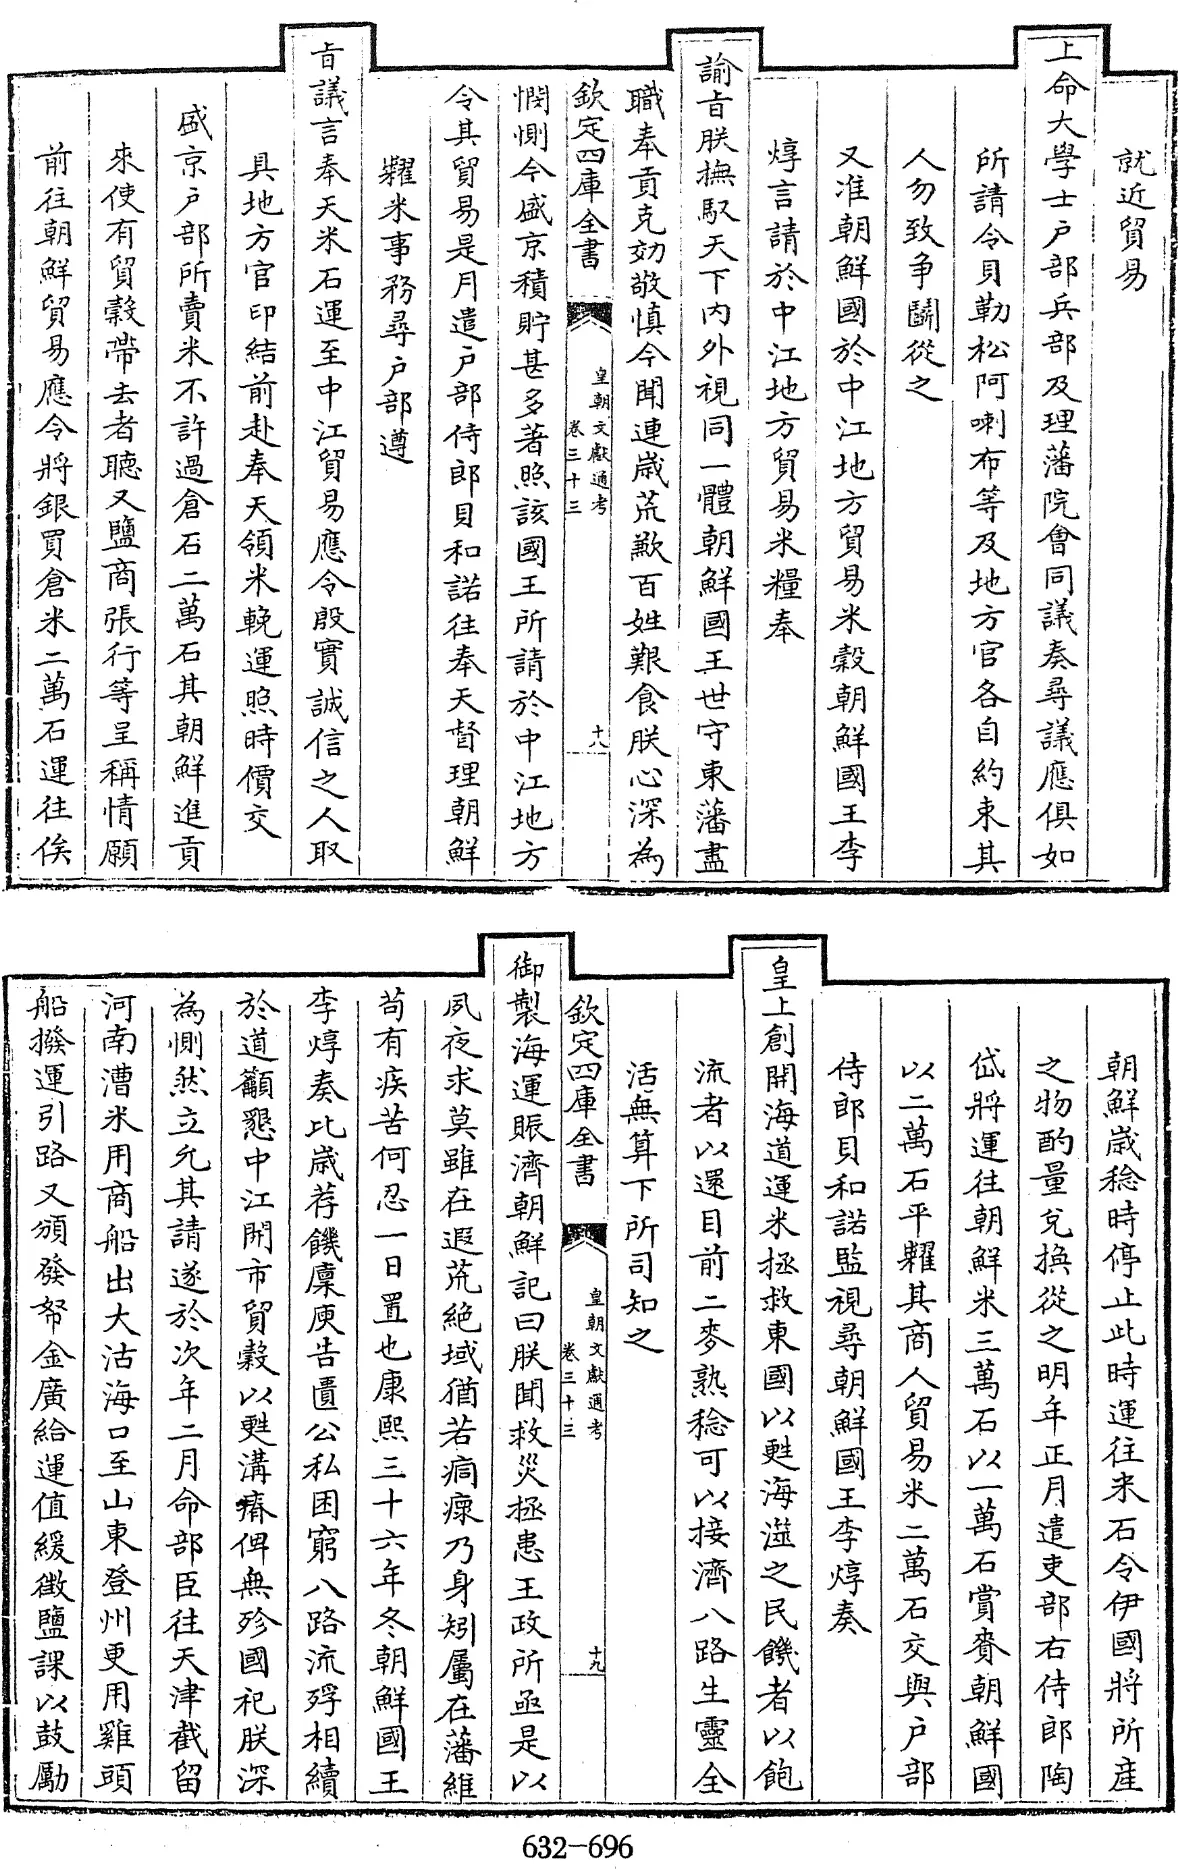 就近貿易
上命大學士户部兵部及理藩院會同議奏尋議應俱如
所請令貝勒松阿喇布等及地方官各自約束其
人勿致爭鬭從之
又准朝鮮國於中江地方貿易米穀朝鮮國王李
焞言請於中江地方貿易米糧奉
諭旨朕撫馭天下内外視同一體朝鮮國王世守東藩盡
職奉貢克効敬慎今聞連歲荒歉百姓艱食朕心深為
欽定四庫全書
皇朝文獻通考
卷三十三
十八
憫惻今盛京積貯甚多著照該國王所請於中江地方
令其貿易是月遣户部侍郎貝和諾往奉天督理朝鮮
糶米事務尋户部遵
旨議言奉天米石運至中江貿易應令殷實誠信之人取
具地方官印結前赴奉天領米輓運照時價交
盛京户部所賣米不許過倉石二萬石其朝鮮進貢
來使有貿穀帶去者聽又鹽商張行等呈稱情願
前往朝鮮貿易應令將銀買倉米二萬石運往俟
朝鮮歲稔時停止此時運往米石令伊國將所産
之物酌量兌換從之明年正月遣吏部右侍郎陶
岱將運往朝鮮米三萬石以一萬石賞賚朝鮮國
以二萬石平糶其商人貿易米二萬石交與户部
侍郎貝和諾監視尋朝鮮國王李焞奏
皇上創開海道運米拯救東國以甦海澨之民饑者以飽
流者以還目前二麥熟稔可以接濟八路生靈全
活無算下所司知之
欽定四庫全書
皇朝文獻通考
卷三十三
十九
御製海運賑濟朝鮮記曰朕聞救災拯患王政所亟是以
夙夜求莫雖在遐荒絶域猶若痌瘝乃身矧屬在藩維
苟有疾苦何忍一日置也康熙三十六年冬朝鮮國王
李焞奏比歲荐饑廩庾告匱公私困窮八路流殍相續
於道籲懇中江開市貿穀以甦溝瘠俾無殄國祀朕深
為惻然立允其請遂於次年二月命部臣往天津截留
河南漕米用商船出大沽海口至山東登州更用雞頭
船撥運引路又頒發帑金廣給運值緩徵鹽課以鼓勵
632-696